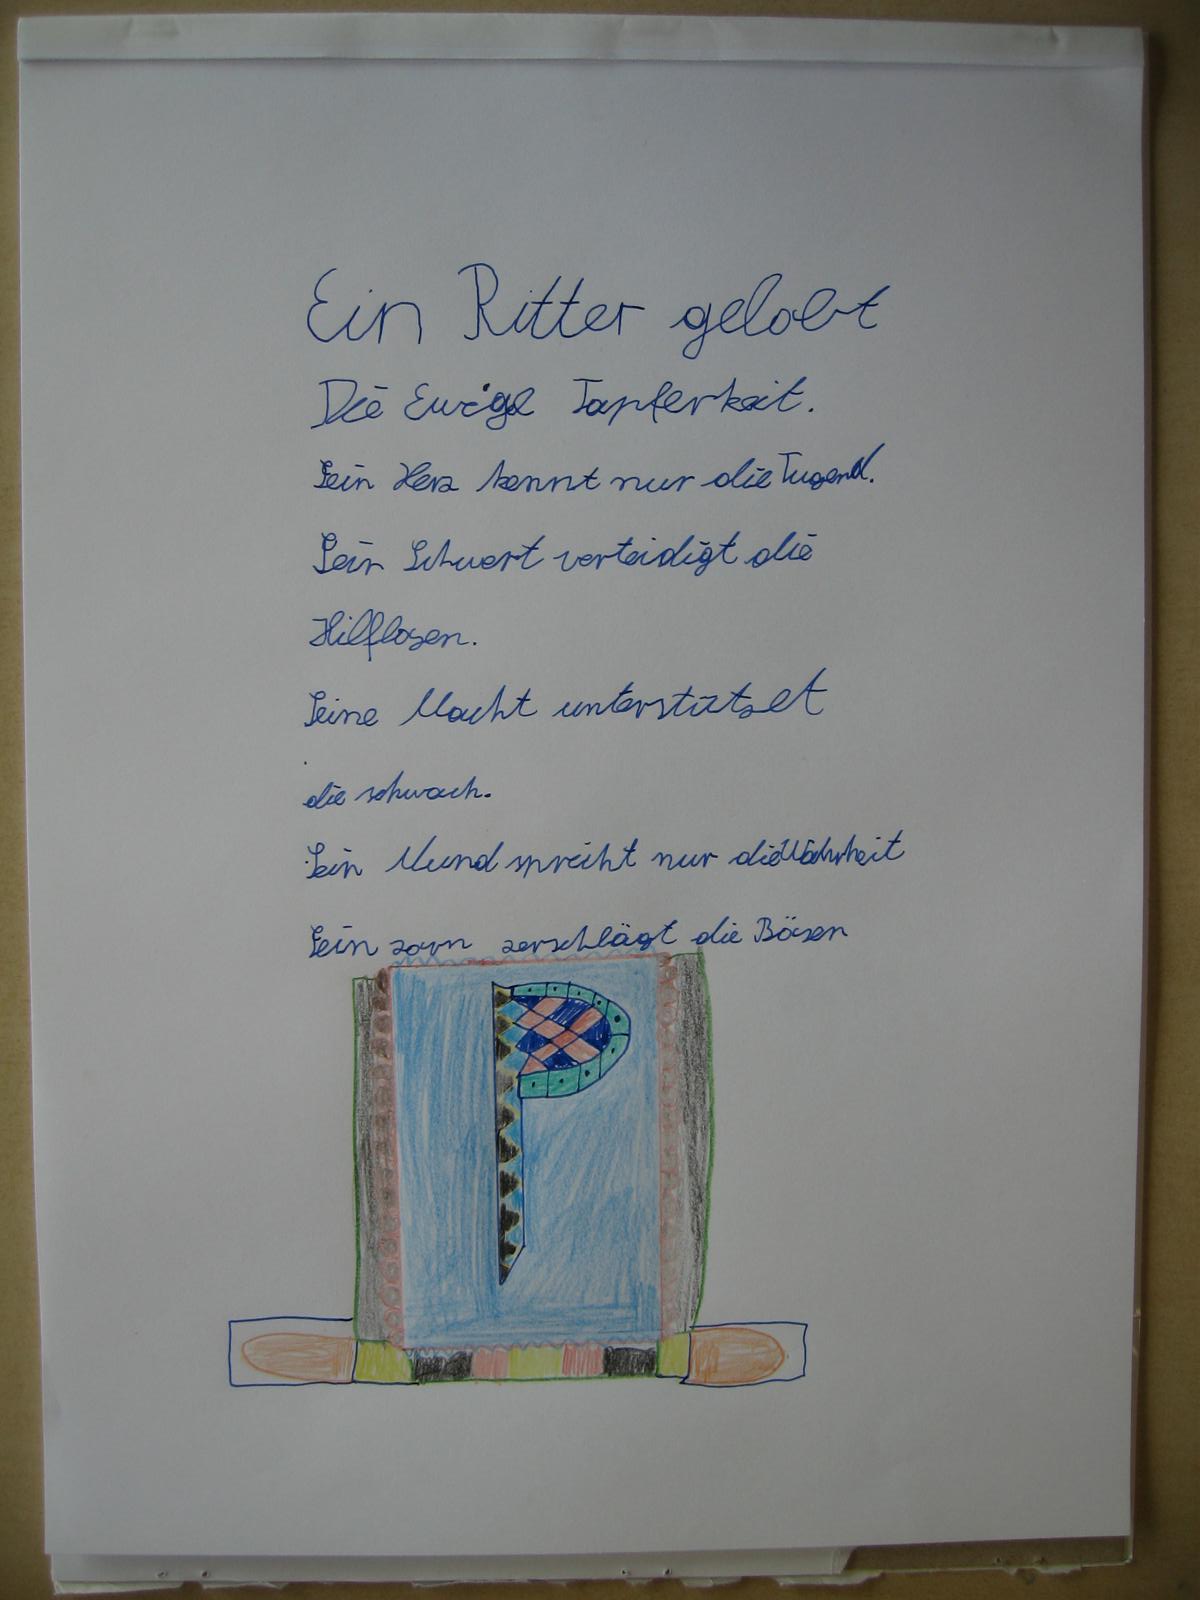 Ein Ritter gelobt
Die Ewige Tapferkeit.
Sein Herz kennt nur die Tugend.
Sein Schwert verteidigt die
Hilflosen.
Seine Macht unterstützet
die schwach.
Sein Mund spreiht nur die Wahrheit
Sein zorn zerschlägt die Bösen
P